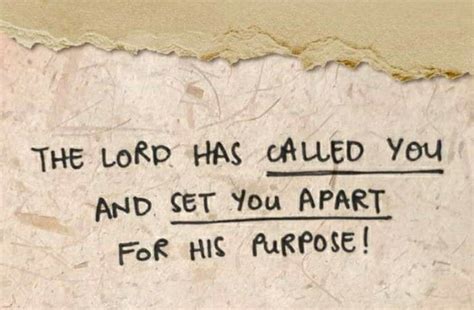 THE LORD HAS CALLED YOU
AND SET YOU APART
FOR HIS PURPOSE!